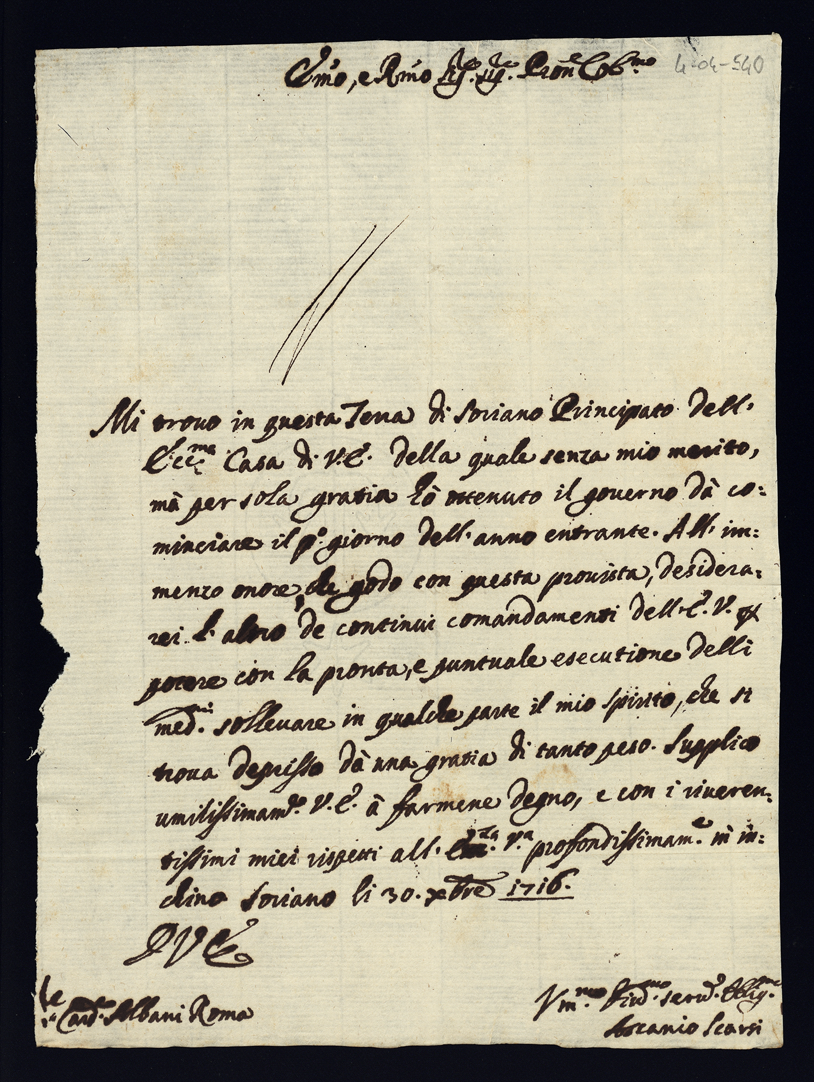 Emo, e Rmo Sig.r Sig.r Pron Colmo
4-04-540
Mi trovo in questa Terra di Soriano Principato dell'
E:cc:ma Casa di V.E. della quale senza mio merito,
mà per sola gratia hò ottenuto il governo dà co:
minciare il p.o giorno dell'anno entrante. All'im:
menzo onore, che godo con questa provista, desidera:
rei l'altro de continui comandamenti dell'E.V. per
potere con la pronta, e puntuale esecutione delli
med.mi sollevare in qualche parte il mio spirito, che si
trova depresso dà una gratia di tanto peso. Supplico
umilissimam.te V.E. à farmene degno, e con i riveren:
tissimi miei rispetti all' V.a profondissimam.e m'in:
chino Soriano li 30. xbre 1716.
D V E
Card. Albani Roma
Vm.mo serv.
Ascanio Scarsi